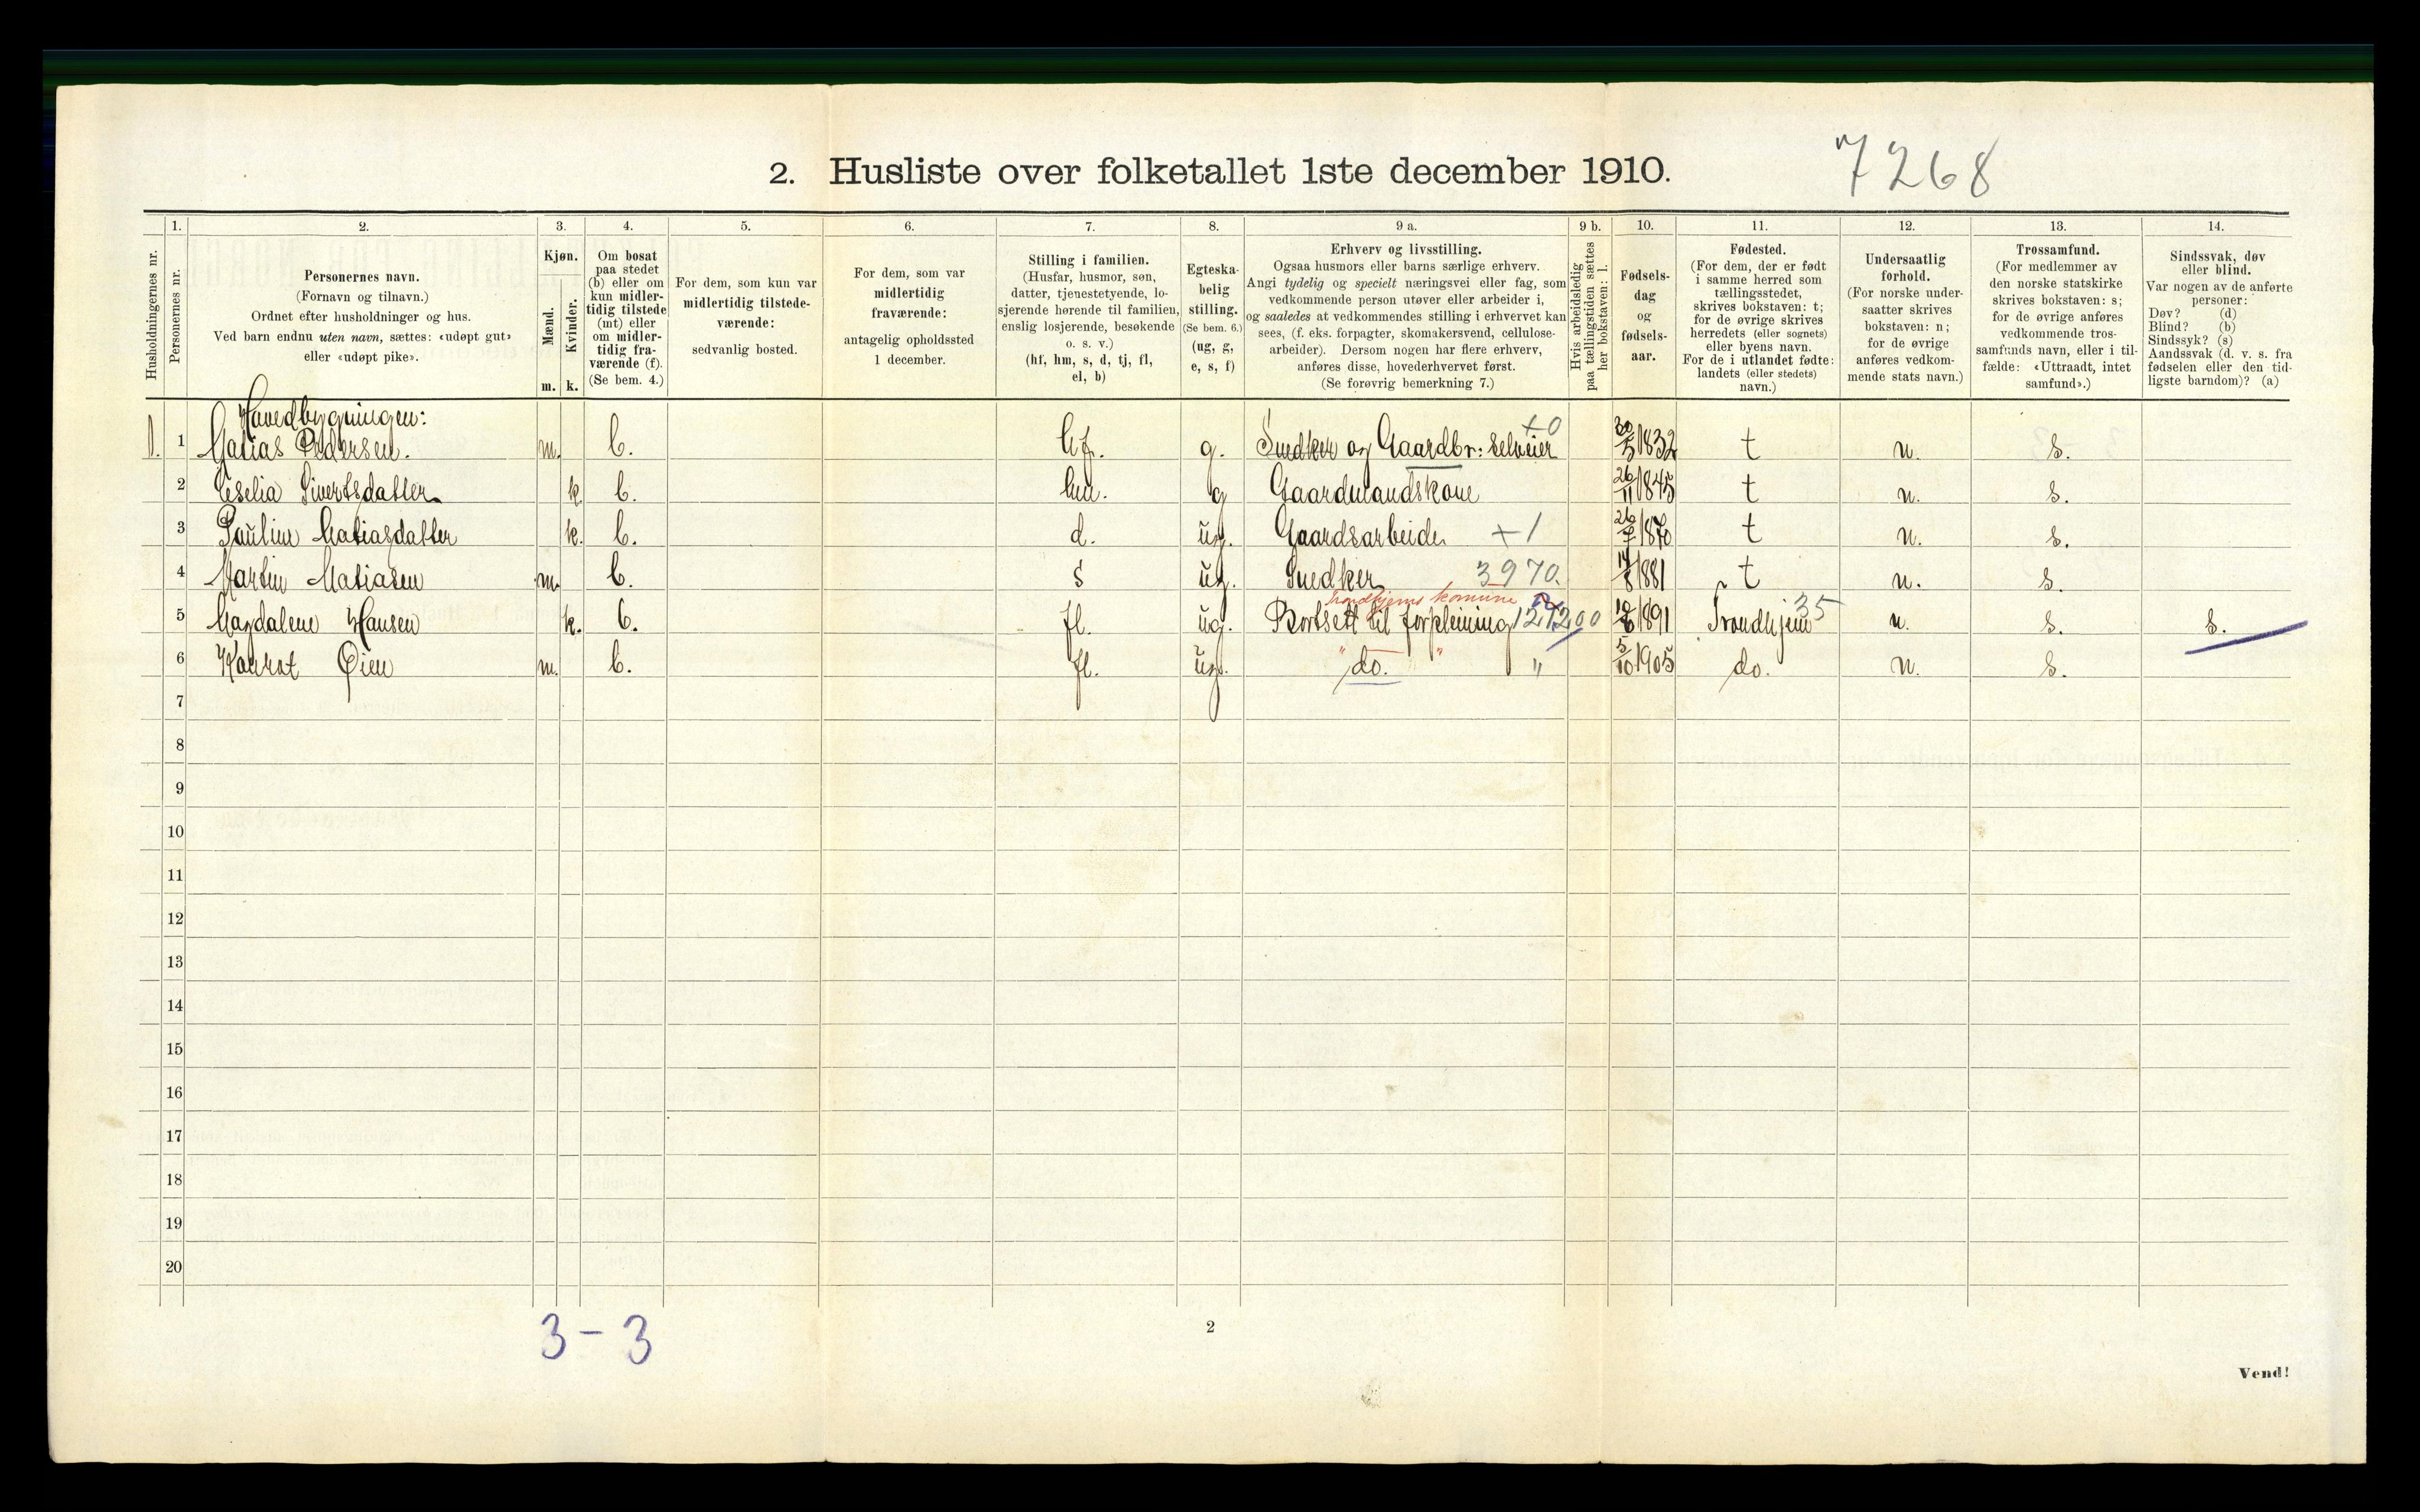 7268
2. Husliste over folketallet 1ste december 1910.
1. 2. 3. 4. 5. 6. 7. 8. 9 a. 9 b. 10. 11. 12. 13. 14.
Husholdningernes nr.
Personernes nr.
Personernes navn.
(Fornavn og tilnavn.)
Ordnet efter husholdninger og hus.
Ved barn endnu uten navn, sættes: «udøpt gut»
eller «udøpt pike».
Kjøn.
Mænd.
Kvinder.
m. k.
Om bosat
paa stedet
(b) eller om
kun midler-
tidig tilstede
(mt) eller
om midler-
tidig fra-
værende (f).
(Se bem. 4.)
For dem, som kun var
midlertidig tilstede-
værende:
sedvanlig bosted.
For dem, som var
midlertidig
fraværende:
antagelig opholdssted
1 december.
Stilling i familien.
(Husfar, husmor, søn,
datter, tjenestetyende, lo-
sjerende hørende til familien,
enslig losjerende, besøkende
o. s. v.)
(hf, hm, s, d, tj, fl,
el, b)
Egteska-
belig
stilling.
(Se bem. 6.)
(ug, g,
e, s, f)
Erhverv og livsstilling.
Ogsaa husmors eller barns særlige erhverv.
Angi tydelig og specielt næringsvei eller fag, som
vedkommende person utøver eller arbeider i,
og saaledes at vedkommendes stilling i erhvervet kan
sees, (f. eks. forpagter, skomakersvend, cellulose-
arbeider). Dersom nogen har flere erhverv,
anføres disse, hovederhvervet først.
(Se forøvrig bemerkning 7.)
Hvis arbeidsledig
paa tællingstiden sættes
her bokstaven: l.
Fødsels-
dag
og
fødsels-
aar.
Fødested.
(For dem, der er født
i samme herred som
tællingsstedet,
skrives bokstaven: t;
for de øvrige skrives
herredets (eller sognets)
eller byens navn.
For de i utlandet fødte:
landets (eller stedets)
navn.)
Undersaatlig
forhold.
(For norske under-
saatter skrives
bokstaven: n;
for de øvrige
anføres vedkom-
mende stats navn.)
Trossamfund.
(For medlemmer av
den norske statskirke
skrives bokstaven: s;
for de øvrige anføres
vedkommende tros-
samfunds navn, eller i til-
fælde: «Uttraadt, intet
samfund».)
Sindssvak, døv
eller blind.
Var nogen av de anførte
personer:
Døv? (d)
Blind? (b)
Sindssyk? (s)
Aandssvak (d. v. s. fra
fødselen eller den tid-
ligste barndom)? (a)
Hovedbygningen:
1. 1 Matias Pedersen. m. b. hf. g. Snedker og Gaardbr: selveier +0 30/5 1832 t n. s.
2 Eselia Sivertsdatter k b. hm. g Gaardmandskone 26/11 1845 t n. s.
3 Pauline Matiasdatter k. b. d. ug. Gaardsarbeide +1 1870 t n. s.
4 Martin Matiasen m. b. s ug. Snedker 3970. 14/8 1881 t n. s.
Trondhjems komune
5 Magdalene Hansen k. b. fl. ug. Bortsett til forpleining 1891 Trondhjem 35 n. s. s.
6 Konrat Øien m. b. fl. ug. " do. " " 5/10 1905 do. n. s.
7
8
9
10
11
12
13
14
15
16
17
18
19
20
3 - 3
2
Vend!